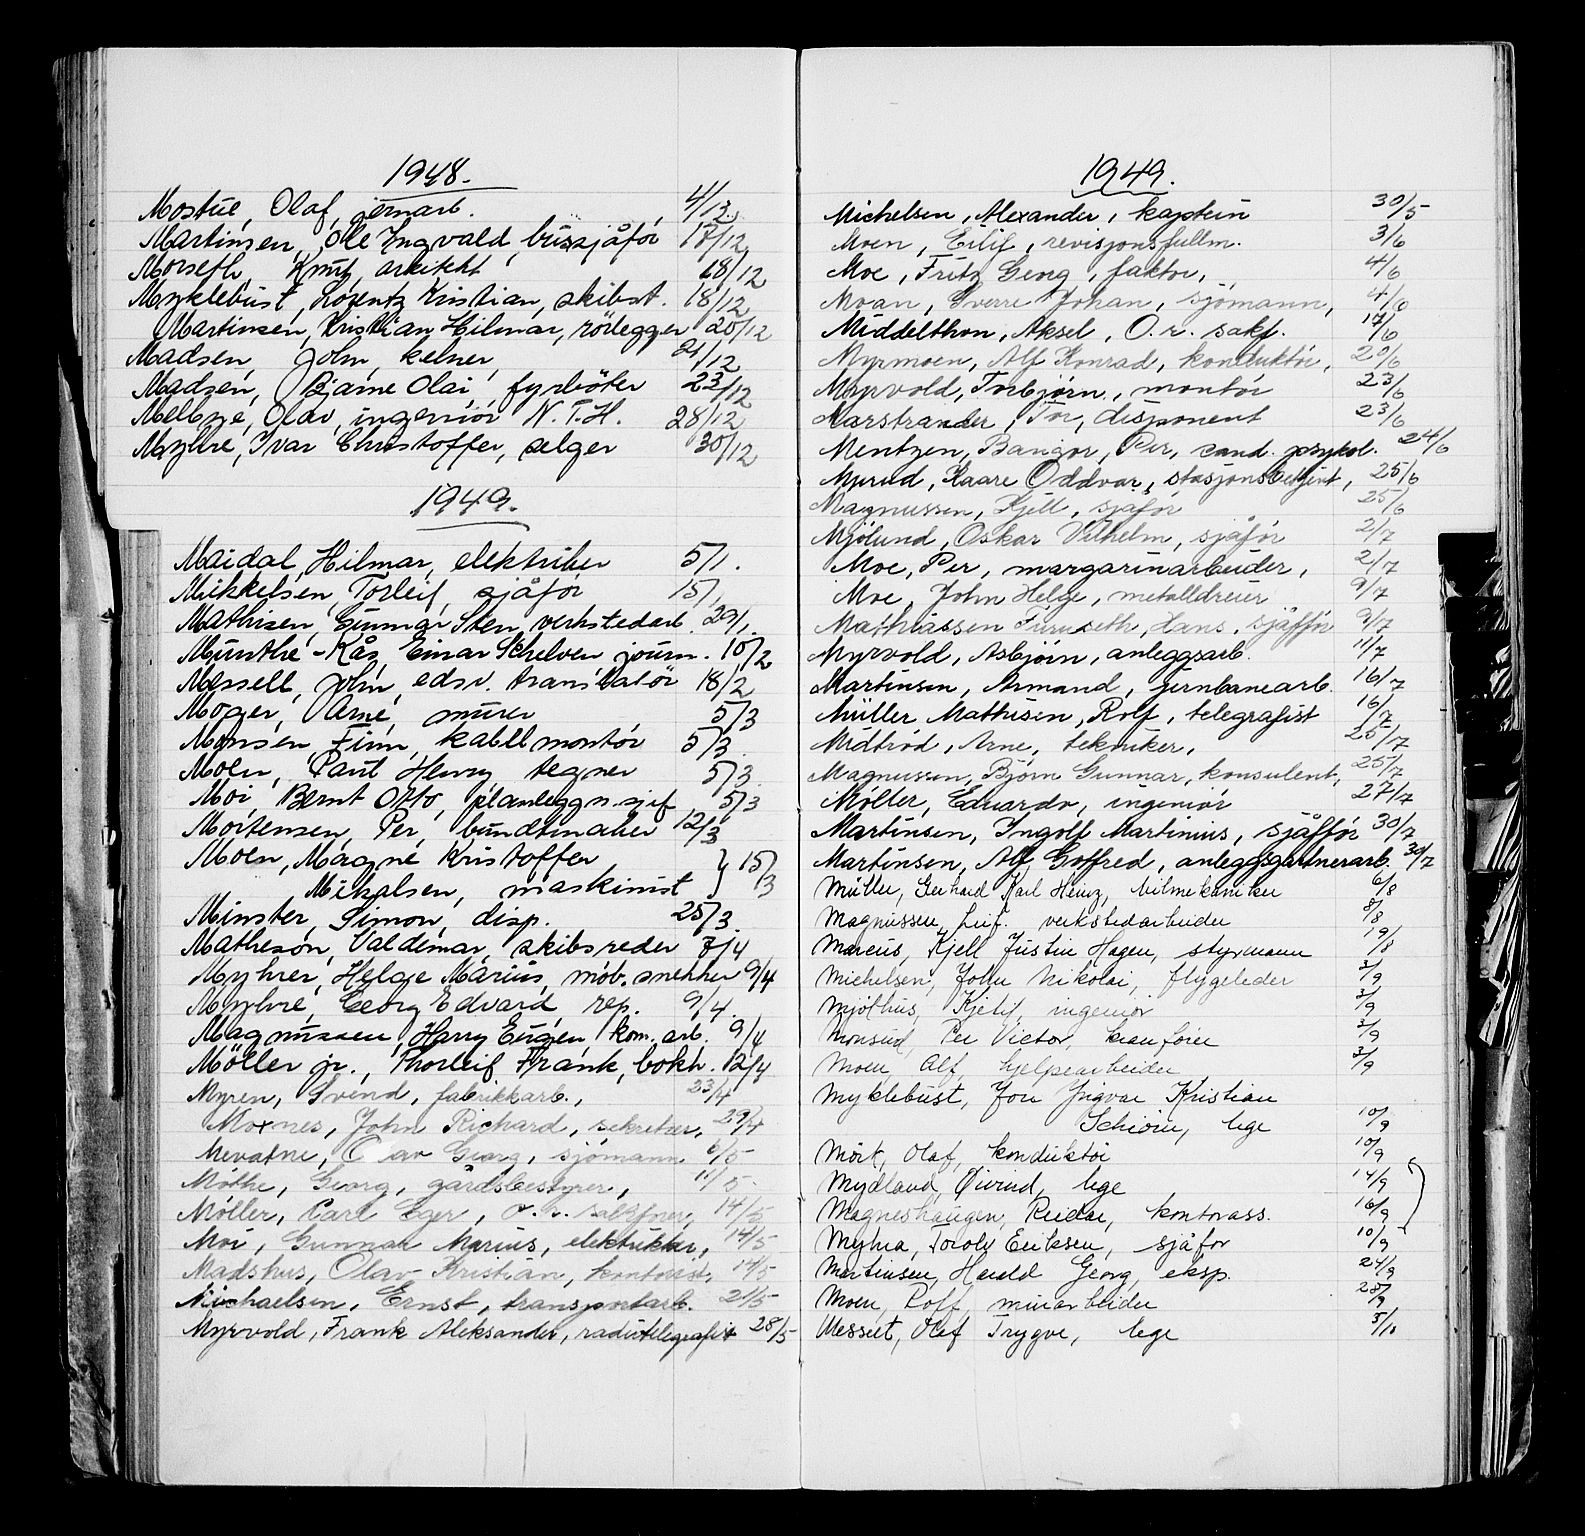 1948.
Mostue, Olaf, jernarb. 4/12.
Martinsen, Ole Ingvald, bussjåför 17/12
Morseth, Knut, arkitekt 18/12
Myklebust, Lorentz Kristian, skibst. 18/12
Martinsen, Kristian Hilmar, rörlegger 20/12
Madsen, John, kelner, 21/12
Madsen, Bjarne Olai, fyrböter 23/12
Melbye, Olav, ingeniör N.T.H. 28/12
Myhre, Ivar Christoffer, selger 30/12
1949.
Maidal, Hilmar, elektriker 5/1.
Mikkelsen, Torleif, sjåför 15/1
Mathisen, Gunnar Sten, verkstedarb. 29/1.
Munthe-Kås, Einar Schelven journ. 10/2
Messell, John, edsv. translatör 18/2
Moger, Arne, murer 5/3
Monsen, Finn, kabelmontör 5/3
Moen, Paul Henry tegner 5/3
Moi, Bernt Otto, planleggn.sjef 5/3
Mortensen, Per, buntmaker 12/3
Moen, Magne Kristoffer } 15/3
Mikalsen, maskinist
Minster, Simon, disp. 25/3.
Matheson, Valdemar, skibsreder 7/4
Myhrer, Helge Marius, möb.snekker 9/4
Myhre, Georg Edvard, rep. 9/4.
Magnussen, Harry Eugen, kom. arb. 9/4
Möller jr., Thorleif Frank, bokh. 12/4
Myren, Svend, fabrikkarb., 23/4
Moxnes, John Richard, sekretær, 29/4
Mevatne, O av Georg, sjömann 6/5
Möthe, Georg, gårdsbestyrer, 11/5
Möller, Carl Eger, o.r. sakfører, 14/5
Moi, Gunnar Marius, elektriker, 14/5
Madshus, Olav Kristian, kontorist, 14/5
Michaelsen, Ernst, transportarb. 21/5
Myrvold, Frank Aleksander, radiotelegrafist 28/5
1949.
Michelsen, Alexander, kaptein 30/5
Moen, Eilif, revisjonsfullm. 3/6
Moe, Fritz Georg, faktor, 4/6
Moan, Sverre Johan, sjömann, 4/6
Middelthon, Aksel, O.r. sakf. 17/6
Myrmoen, Alf Konrad, konduktör, 20/6
Myrvold, Torbjørn, montör 23/6
Marstrander, Tor, disponent 23/6
Mentzen, Bangor, Per, cand. psykol. 24/6
Myrud, Kaare Oddvar, stasjonsbetjent, 25/6
Magnussen, Kjell, sjåför 25/6
Mjölund, Oskar Vilhelm, sjåför 2/7
Moe, Per, margarinarbeider, 2/7
Moe, John Helge, metalldreier 9/7
Mathiassen Furuseth, Hans, sjåfför 9/7
Myrvold, Asbjörn, anleggsarb. 11/7
Martinsen, Armand, jernbanearb. 16/7
Müller Mathisen, Rolf, telegrafist 16/7
Midtröd, Arne, tekniker, 25/7
Magnussen, Björn Gunnar, konsulent, 25/7
Möller, Eduardo, ingeniör 27/7
Martinsen, Ingolf Martinius, sjåfför 30/7
Martinsen, Alf Gotfred, anleggsgartnerarb. 30/7
Müller, Gerhard Karl Heinz, bilmekaniker 6/8
Magnussen, Leif. verkstedarbeider 8/8
Marcus, Kjell Justin Hagen, styrmann 19/8
Michelsen, John Nikolai, flygeleder 3/9
Mjölhus, Kjetil, ingeniör 3/9
Monsrud, Per Victor, kranförer 3/9
Moen, Alf, hjelpearbeider 3/9
Myklebust, Jon Yngvar Kristian
Schiöru, lege 10/9
Mörk, Olaf, konduktör 10/9
Mydland, Øivind, lege 14/9
Magneshaugen, Reidar, kontorass. 16/9
Myhra, Torolv Eriksen, sjåför 10/9
Martinsen, Harald Georg, eksp. 24/9
Moen, Rolf, murarbeider 28/9
Messelt, Olaf Trygve, lege 5/10